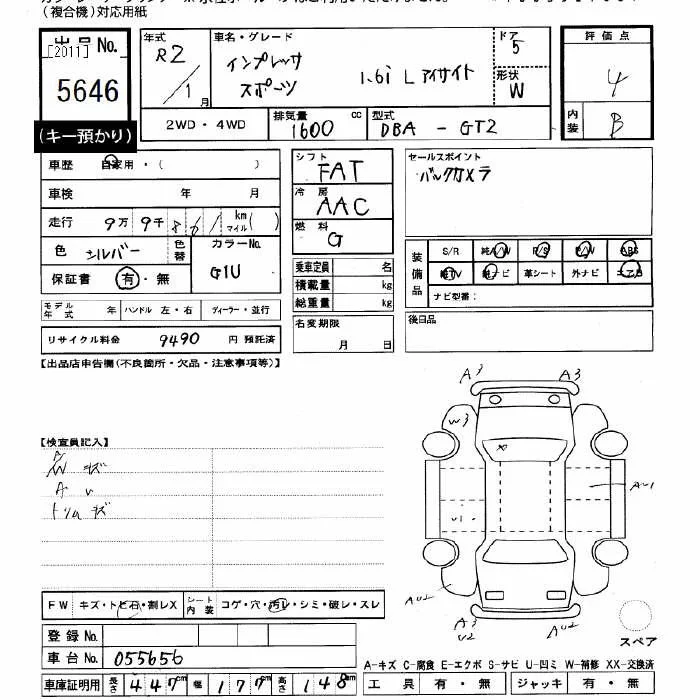 (複合機)対応用紙
出品No.
[2011]
5646
(キー預かり)
年式
R2/1月
車名・グレード
インプレッサ
スポーツ 1.6i L アイサイト
ドア
5
形状
W
2WD・4WD
排気量 1600 cc
型式 DBA - GT2
評価点
4
内装
B
車歴 自家用・( )
車検 年 月
走行 9万9千861 km マイル( )
色 シルバー 色替
カラーNo.
G1U
保証書 有・無
モデル年式 年 ハンドル 左・右 ディーラー・並行
リサイクル料金 9490 円 預託済
シフト
FAT
冷房
AAC
燃料
G
乗車定員 名
積載量 kg
総重量 kg
名変期限
月 日
セールスポイント
バックカメラ
装備品
S/R 純A/W P/S P/W ABS
純TV 純ナビ 革シート 外ナビ エアB
ナビ型番:
後日品
【出品店申告欄(不良箇所・欠品・注意事項等)】
【検査員記入】
W キズ
A U
トリムキズ
FW キズ・トビ石・割レX シート内装 コゲ・穴・汚レ・シミ・破レ・スレ
登録No.
車台No. 055656
車庫証明用 長さ 447cm 幅 177cm 高さ 148cm
A3 A3
W3
X
AU1
U1
AU2 AU2
A3
U2
スペア
A-キズ C-腐食 E-エクボ S-サビ U-凹ミ W-補修 XX-交換済
工具 有・無 ジャッキ 有・無